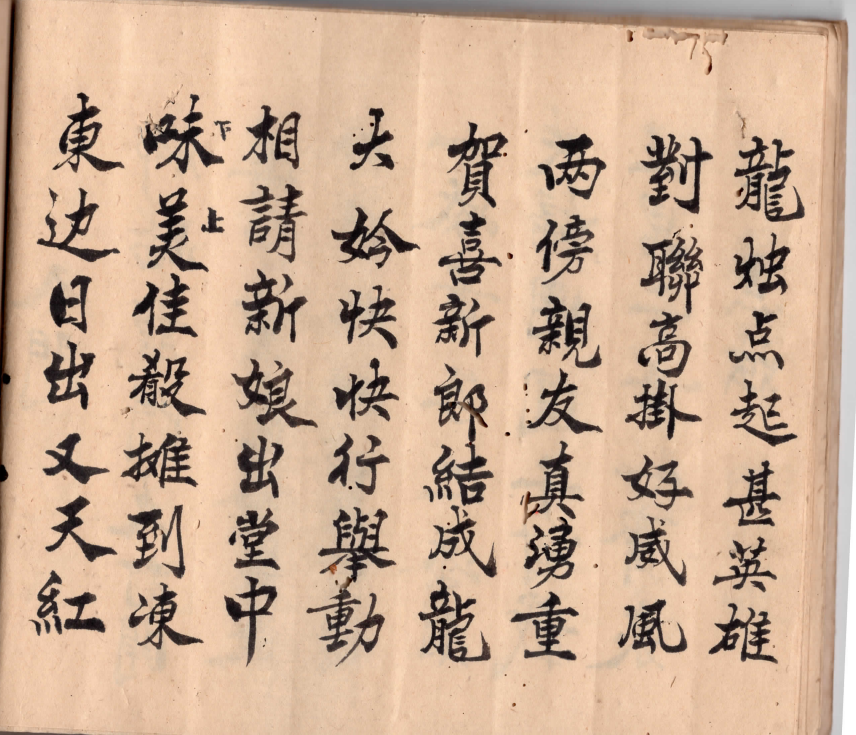 龍烛点起甚英雄
對聯高掛好威風
两傍親友真湧重
賀喜新郎結成龍
大妗快快行舉動
相請新娘出堂中
味下美上佳殽摧到凍
東边日出又天紅